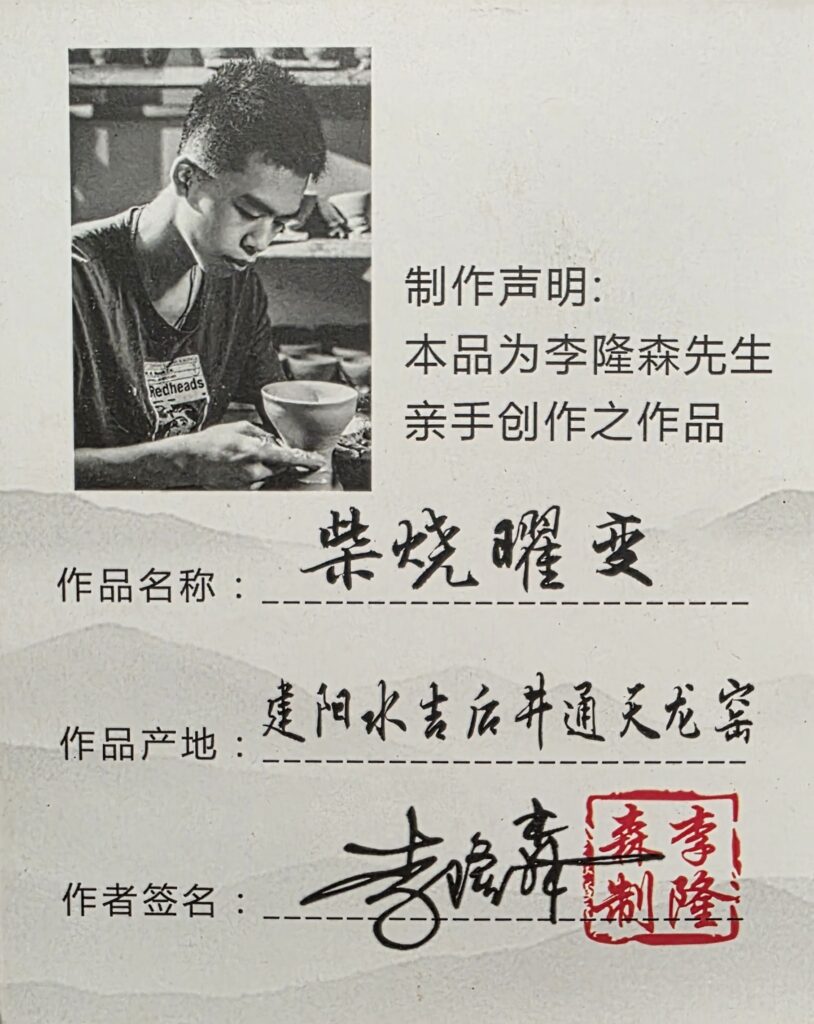 Redheads
制作声明:
本品为李隆森先生
亲手创作之作品
作品名称：柴烧曜变
作品产地：建阳水吉后井通天龙窑
作者签名：李隆森
李隆
森制